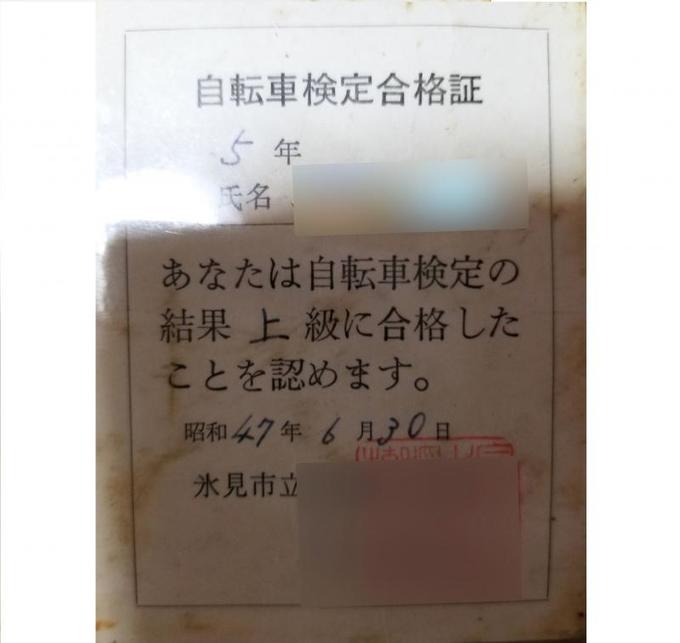 自転車検定合格証
5年
氏名
あなたは自転車検定の
結果 上 級に合格した
ことを認めます。
昭和47年 6月30日
氷見市立